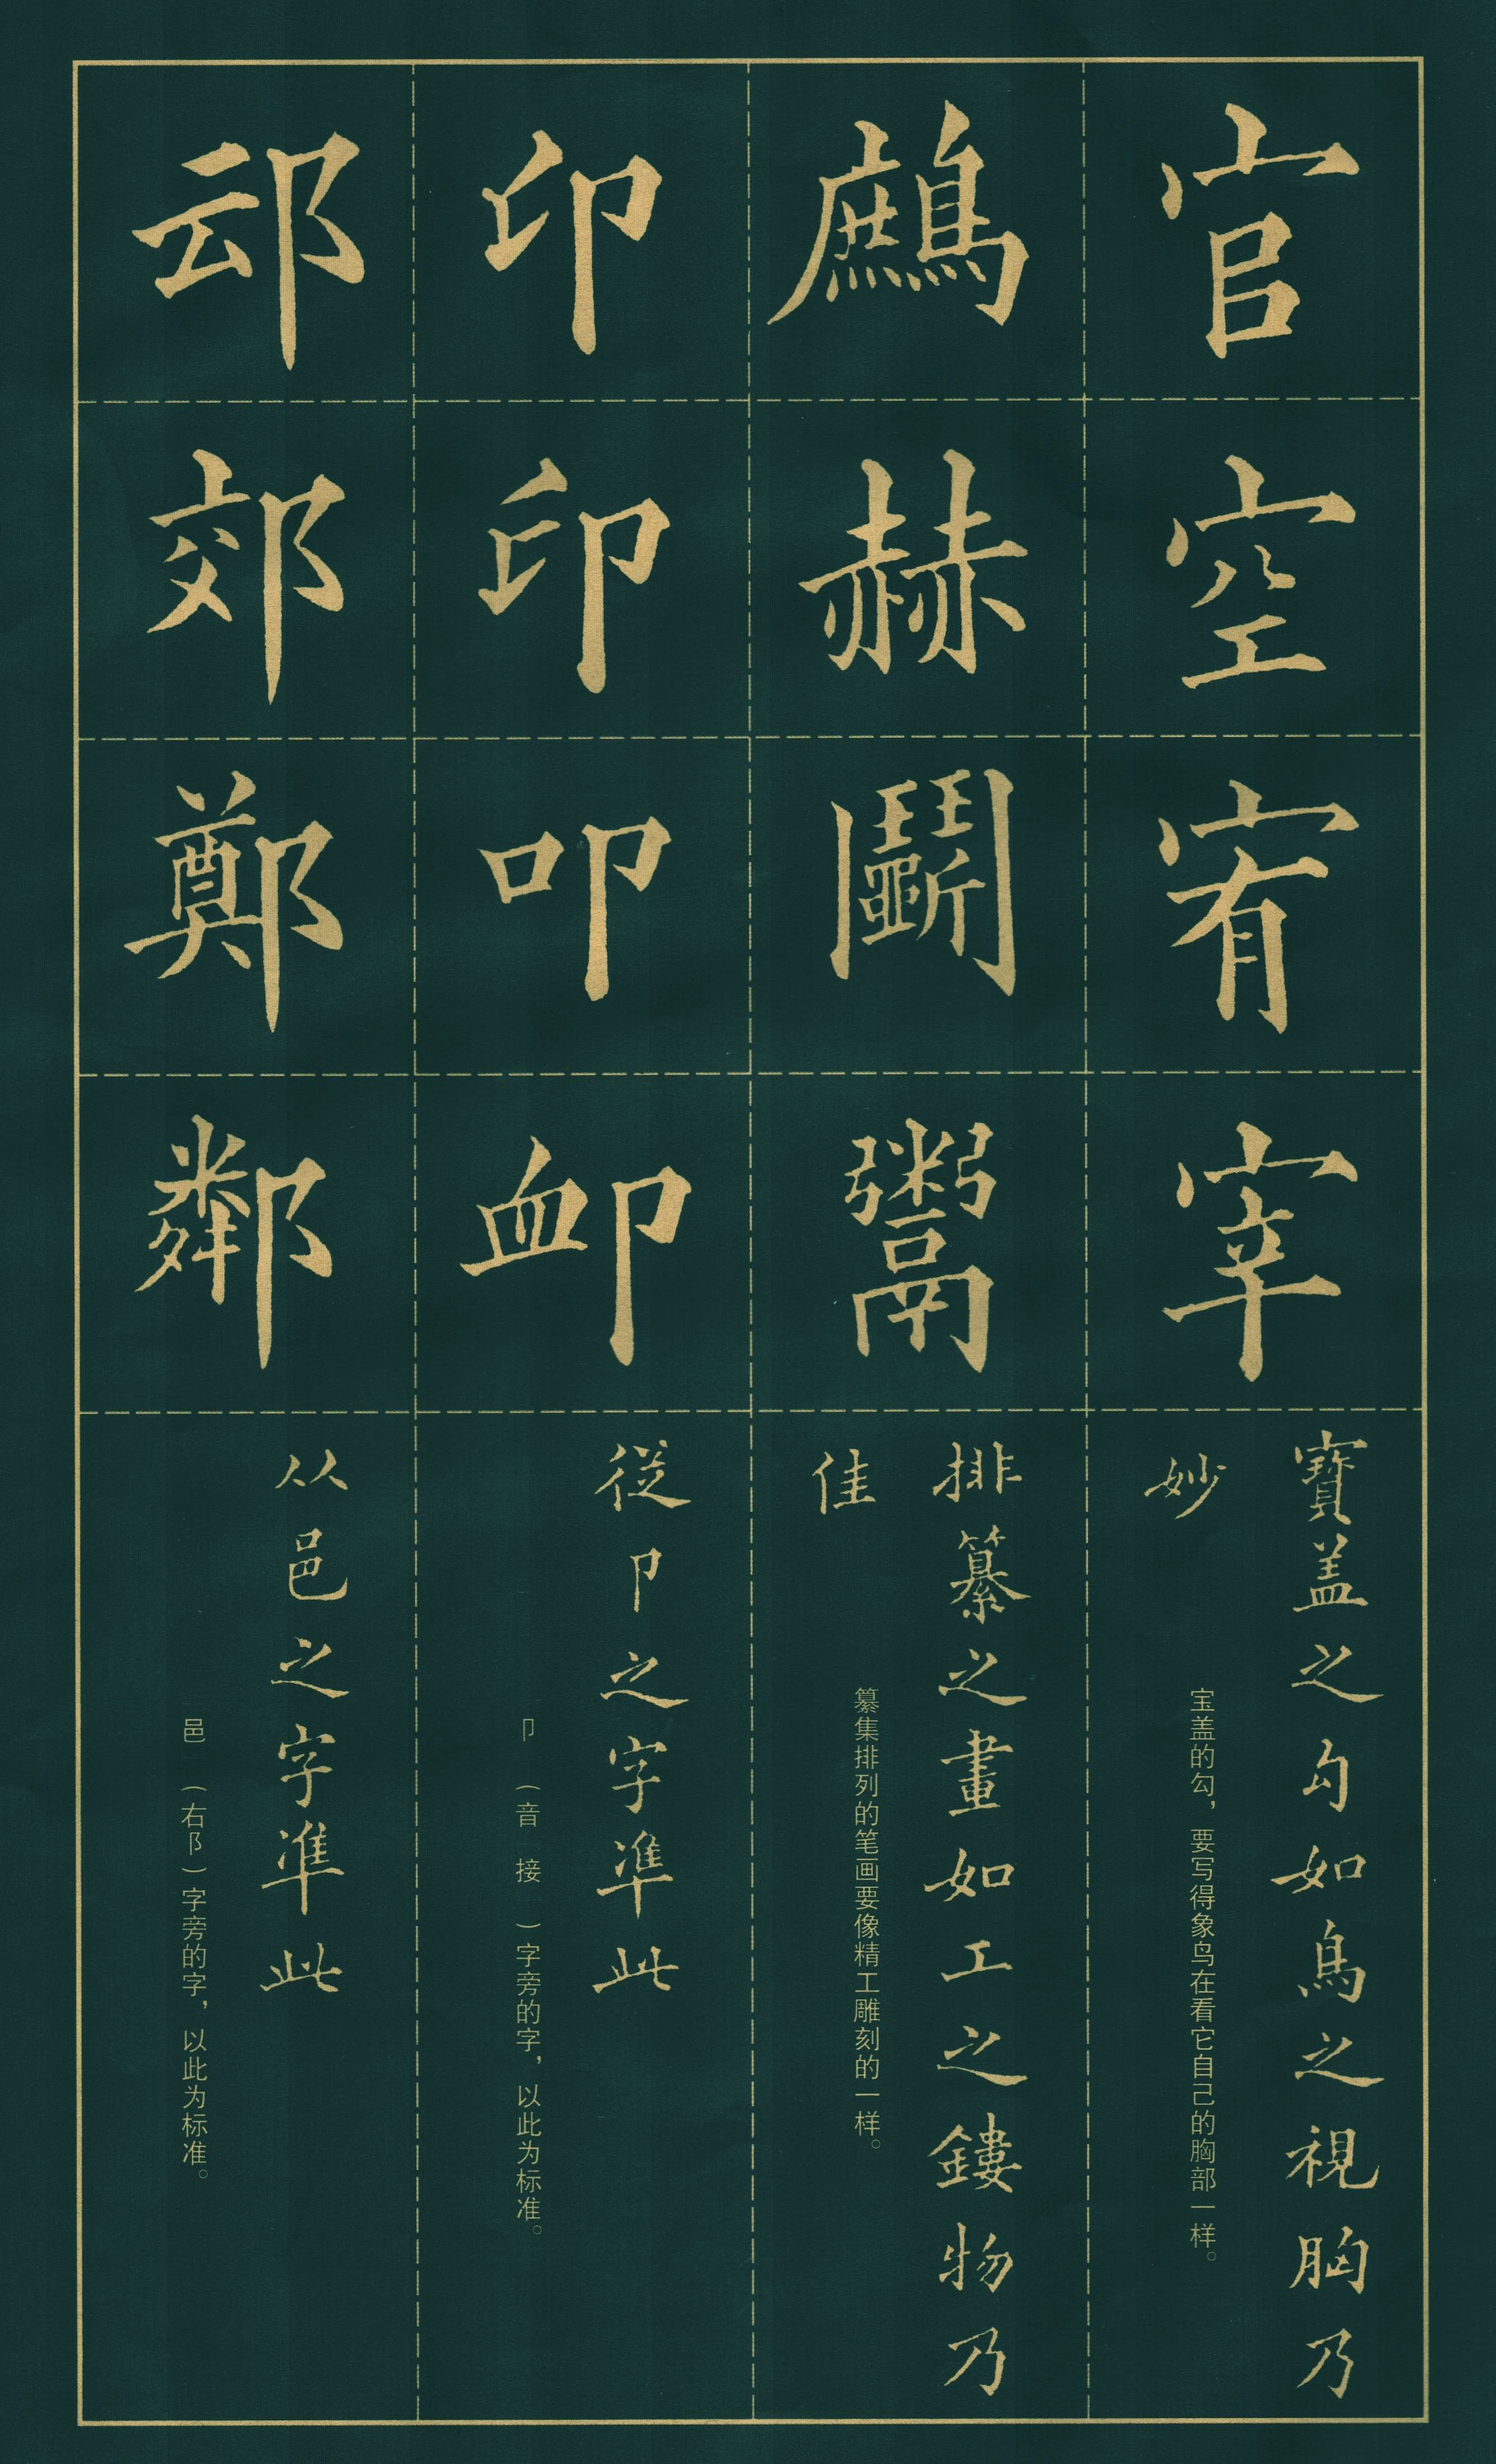 官
空
宥
宰
寶盖之勾如鳥之視胸乃
妙
宝盖的勾，要写得象鸟在看它自己的胸部一样。
鷓
赫
鬭
鬻
排纂之畫如工之鏤物乃
佳
纂集排列的笔画要像精工雕刻的一样。
卬
印
叩
卹
從卩之字準此
卩（音接）字旁的字，以此为标准。
邧
郊
鄭
鄰
从邑之字準此
邑（右阝）字旁的字，以此为标准。